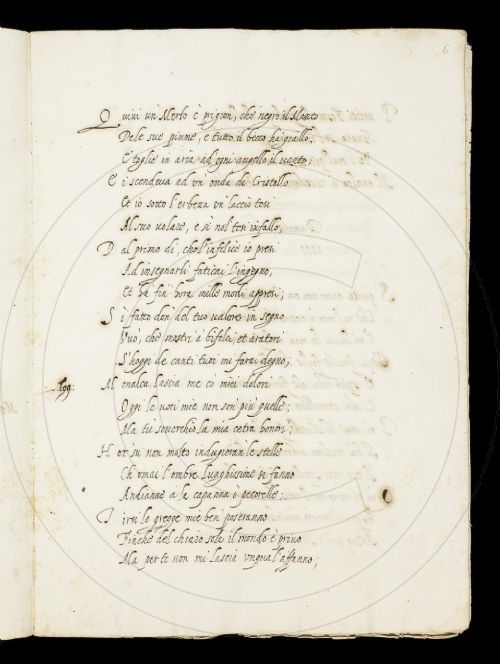 6
Quivi un Merlo è prigion, che negro il Manto
Dele sue piume, e tutto il becco ha giallo,
E toglie in aria ad ogni augello il uanto;
Ei scendeua ad un' onda di Cristallo
Et io sotto l'erbetta un laccio tesi
Al suo uolare, e si nol tesi in fallo;
Dal primo di, che l'infelice io presi
Ad insegnarli faticai l'ingegno,
Et ha fin hora mille modi appresi;
Si fatto don del tuo ualore in segno
Vuo, che mostri a bifolci, et aratori
S'hoggi de canti tuoi mi farai degno;
log: Menalca lascia me co miei dolori
Oggi le uoci mie non son più quelle;
Ma tu souerchio la mia cetra honori;
Hor su non molto indugieran le stelle
Ch'omai l'ombre lunghissime si fanno
Andianne a la capanna o pecorelle;
Tirsi le gregge mie ben poseranno
Finche del chiaro sole il mondo è priuo
Ma per te non mi lascia unqua l'affanno;